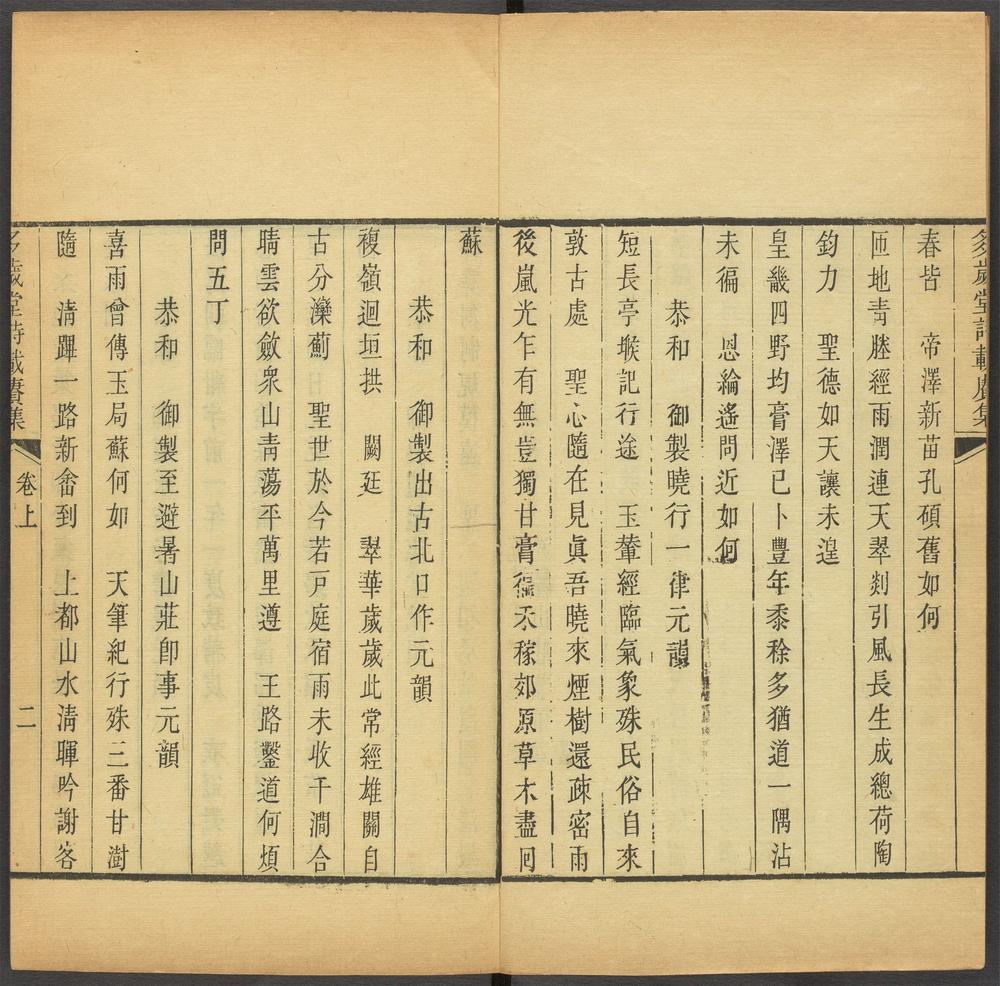 多歲堂詩載賡集
春皆　帝澤新苗孔碩舊如何
匝地青塍經雨潤連天翠剡引風長生成總荷陶
鈞力　聖德如天讓未遑
皇畿四野均膏澤已卜豐年黍稌多猶道一隅沾
未徧　恩綸遙問近如何
恭和　御製曉行一律元韻
短長亭堠記行途　玉輦經臨氣象殊民俗自來
敦古處　聖心隨在見眞吾曉來煙樹還疎密雨
後嵐光乍有無豈獨甘膏禾稼郊原草木盡同
蘇
恭和　御製出古北口作元韻
複嶺迴垣拱　闕廷　翠華歲歲此常經雄關自
古分灤薊　聖世於今若戸庭宿雨未收千澗合
晴雲欲斂衆山青蕩平萬里遵　王路鑿道何煩
問五丁
恭和　御製至避暑山莊卽事元韻
喜雨曾傳玉局蘇何如　天筆紀行殊三番甘澍
隨　清蹕一路新畬到　上都山水清暉吟謝客
多歲堂詩載賡集　卷上　二